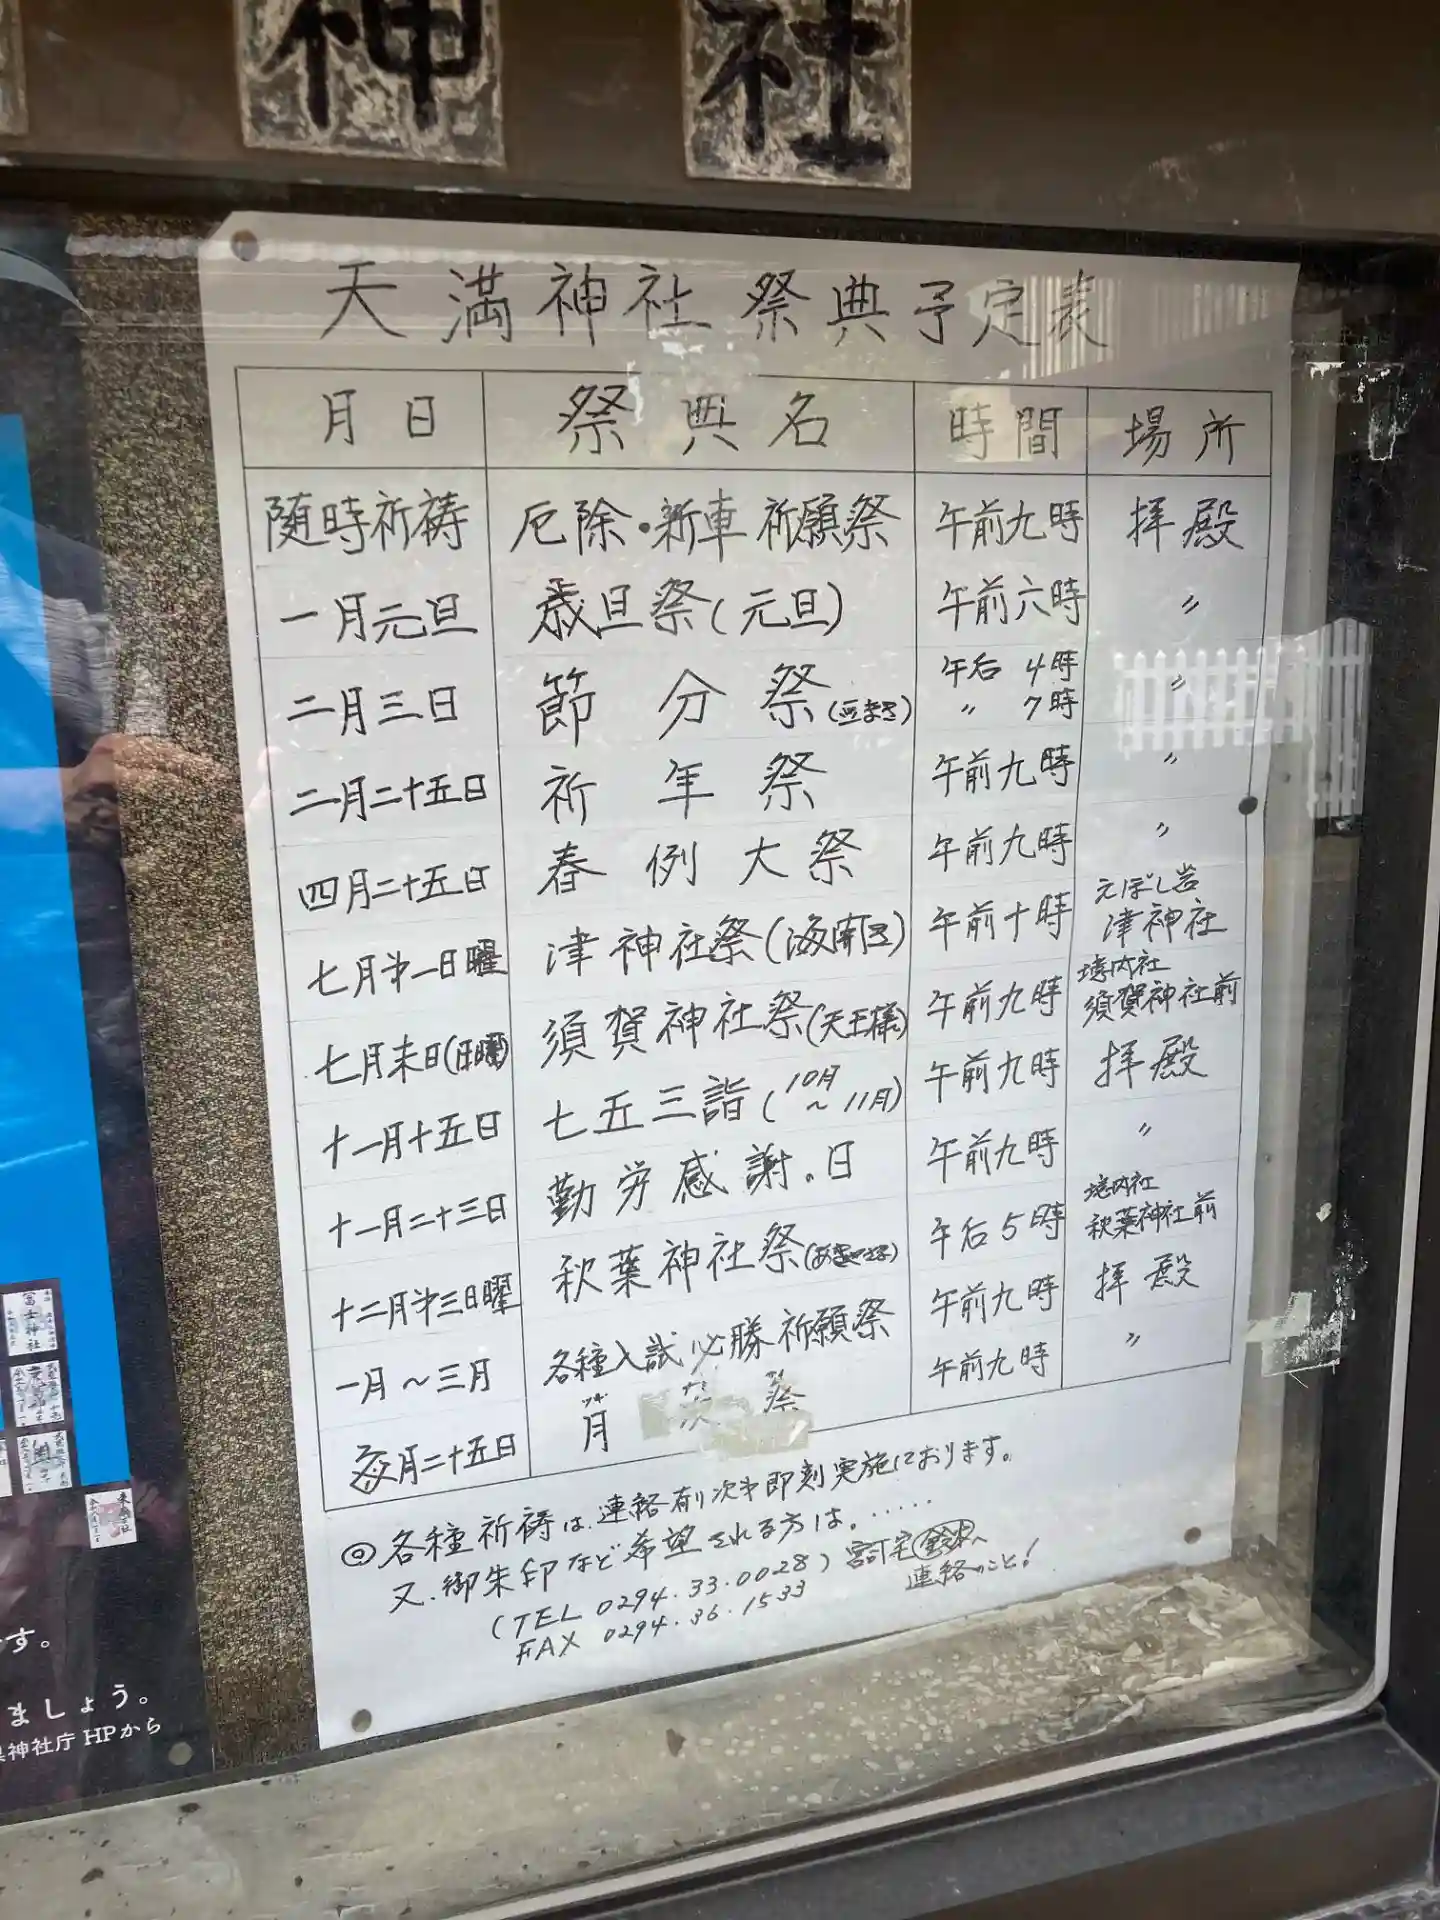 神社
天満神社 祭典予定表
月日 祭典名 時間 場所
随時祈祷 厄除・新車祈願祭 午前九時 拝殿
一月元旦 歳旦祭(元旦) 午前六時 〃
二月三日 節分祭(豆まき) 午后 4時 〃
〃 7時
二月二十五日 祈年祭 午前九時 〃
四月二十五日 春例大祭 午前九時 〃
七月㐧一日曜 津神社祭(海南区) 午前十時 えぼし岩 津神社
七月末日(日曜) 須賀神社祭(天王様) 午前九時 境内社 須賀神社前
十一月十五日 七五三詣(10月～11月) 午前九時 拝殿
十一月二十三日 勤労感謝の日 午前九時 〃
十二月㐧三日曜 秋葉神社祭 午后5時 境内社 秋葉神社前
一月～三月 各種入試必勝祈願祭 午前九時 拝殿
毎月二十五日 月次祭 午前九時 〃
◎各種祈祷は、連絡有り次㐧即刻実施しております。
又、御朱印など希望される方は、・・・・・
(TEL 0294.33.0028) 宮司宅鈴木へ
FAX 0294.36.1533 連絡のこと!
です。
ましょう。
神社庁HPから